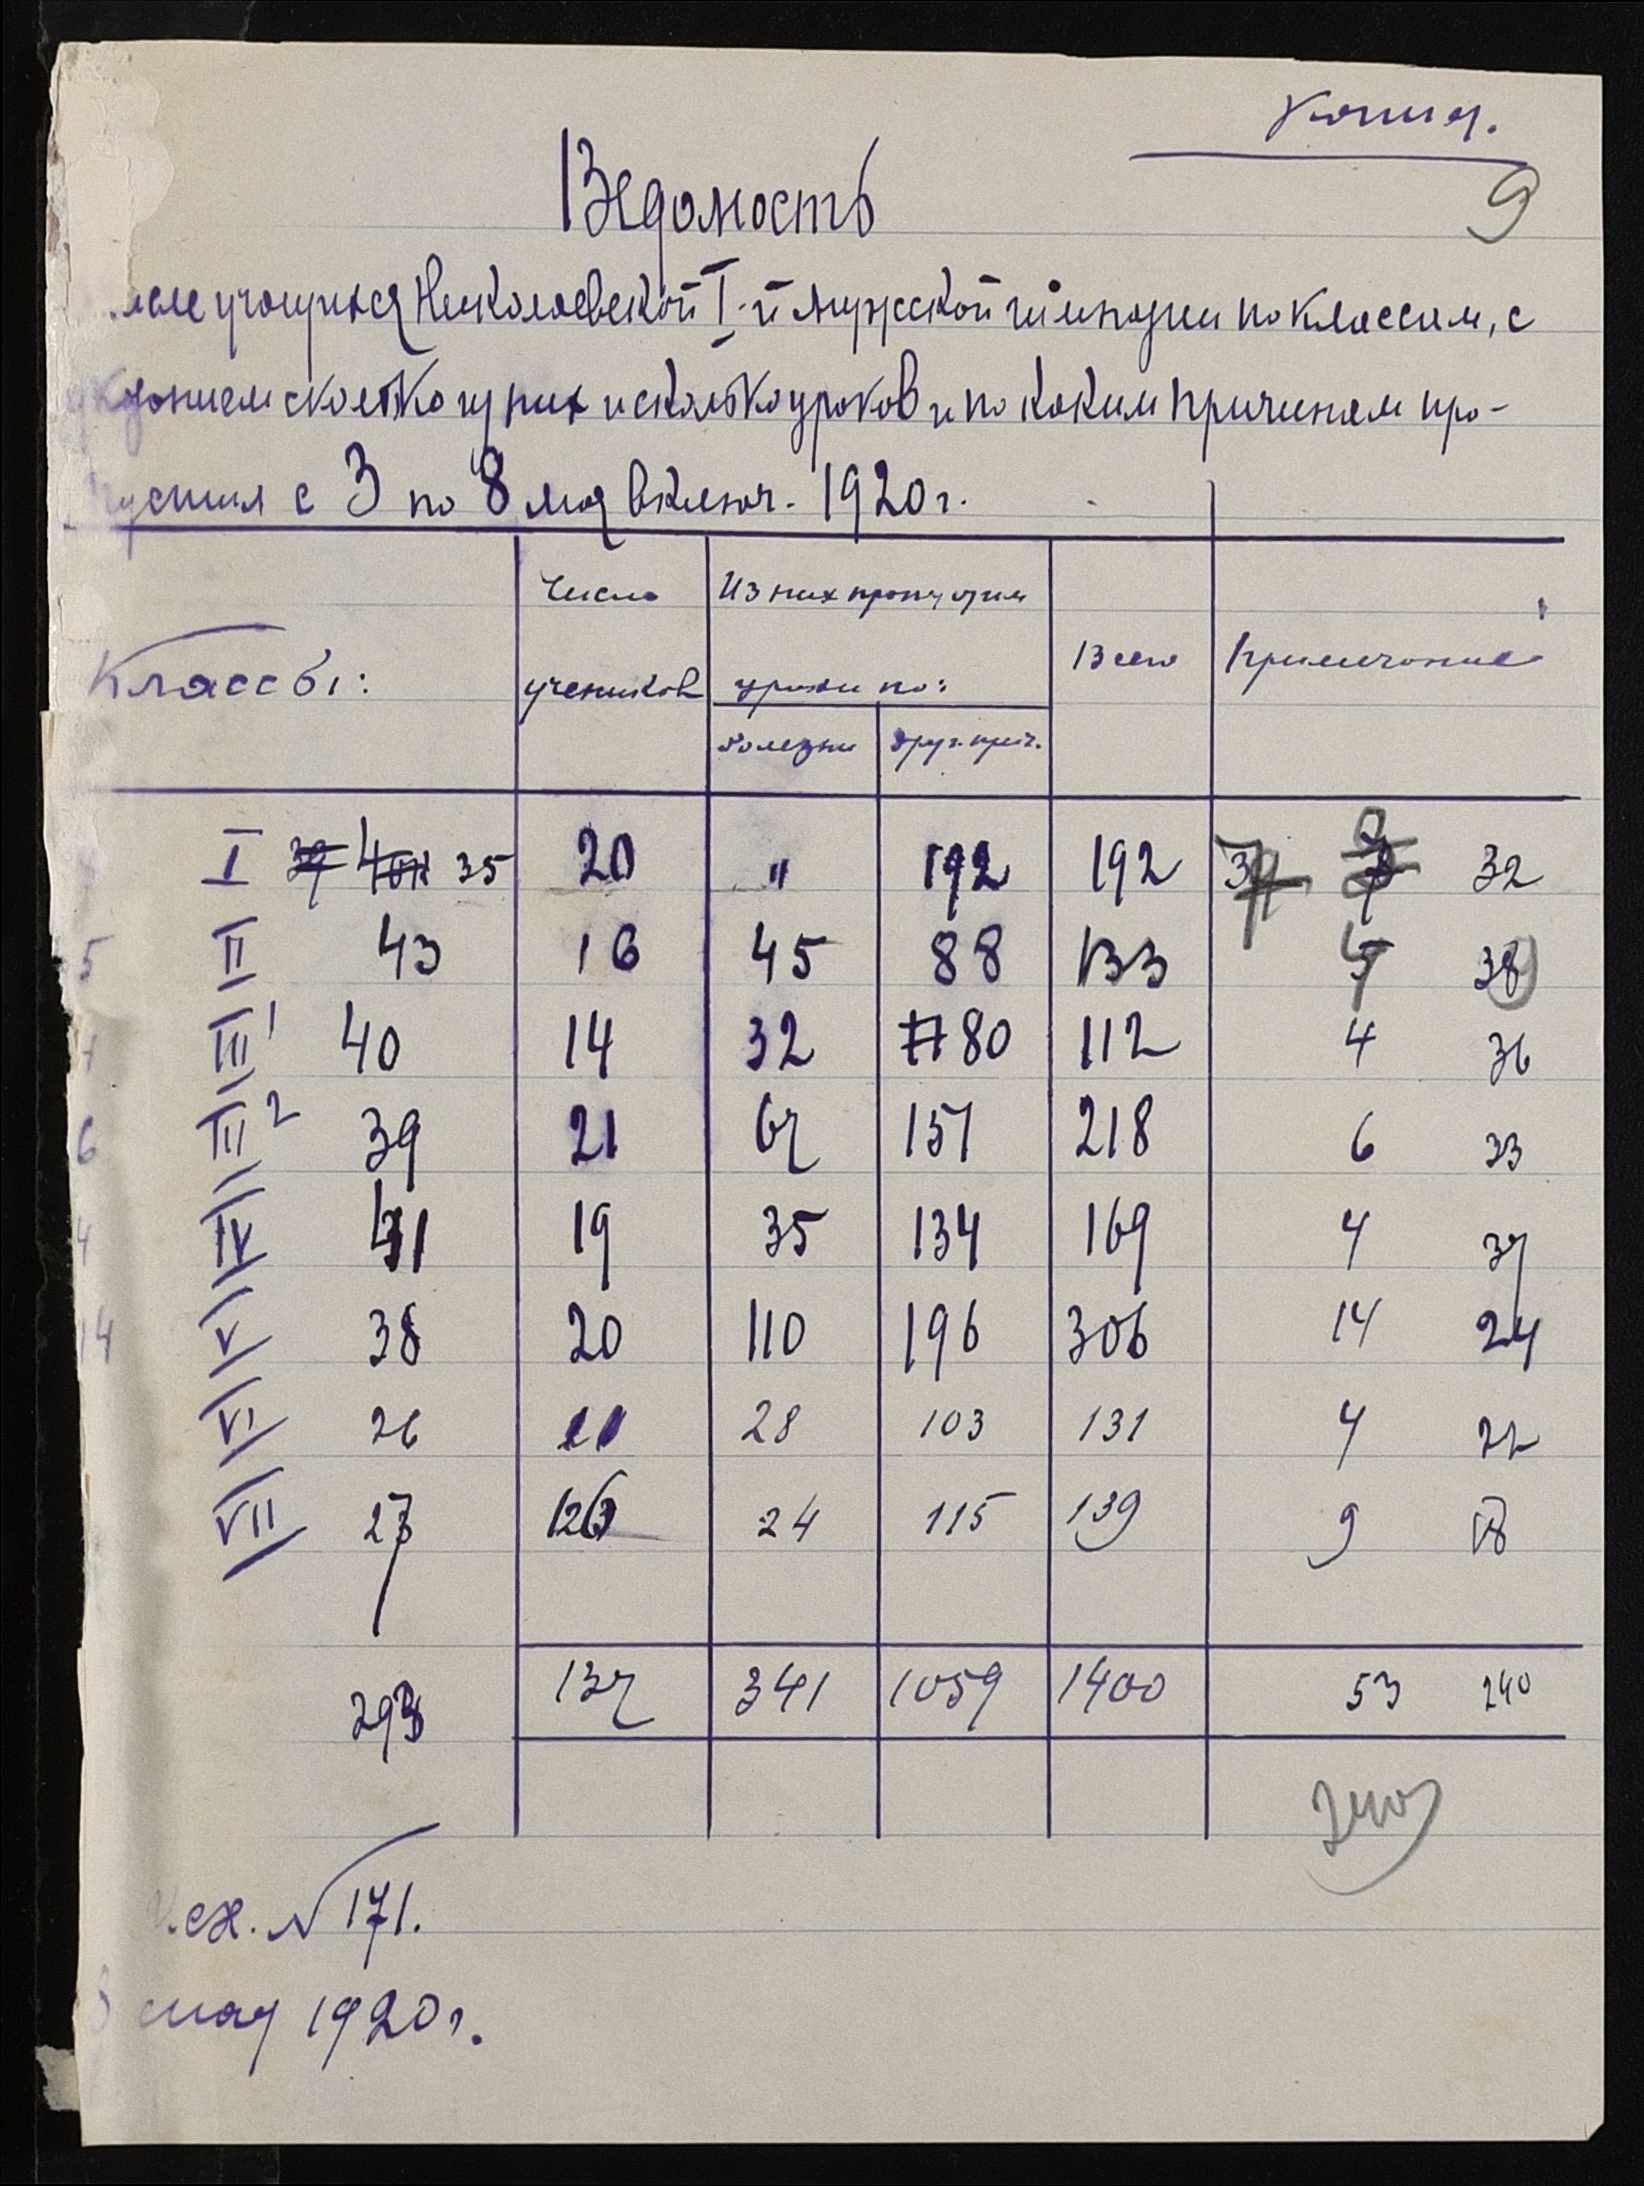 Копия.
9
Ведомость
числе учащихся Николаевской I-й мужской гимназии по классам, с
указанием сколько из них и сколько уроков и по каким причинам про-
пустил с 3 по 8 мая включ. 1920 г.
Классы: Число учеников Из них пропустили уроки по: болезни друг. прич. Всего Примечание
I 39 35 20 " 192 192 32
5 II 43 16 45 88 133 5 38
4 III¹ 40 14 32 80 112 4 36
6 III² 39 21 67 151 218 6 33
4 IV 41 19 35 134 169 4 37
14 V 38 20 110 196 306 14 24
VI 26 11 28 103 131 4 22
VII 27 24 115 139 9 18
293 137 341 1059 1400 53 240
240
Исх. № 171.
8 мая 1920 г.